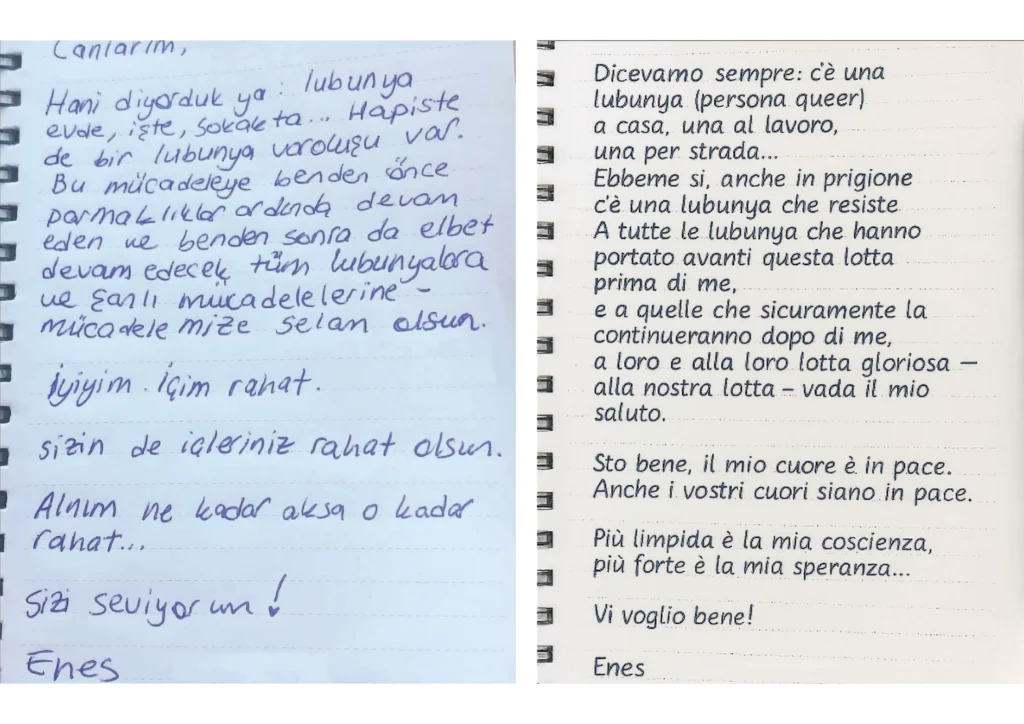 Canlarım,
Hani diyorduk ya: lubunya
evde, işte, sokakta... Hapiste
de bir lubunya varoluşu var.
Bu mücadeleye benden önce
parmaklıklar ardında devam
eden ve benden sonra da elbet
devam edecek tüm lubunyalara
ve şanlı mücadelelerine -
mücadelemize selam olsun.
İyiyim. İçim rahat.
Sizin de içleriniz rahat olsun.
Alnım ne kadar aksa o kadar
rahat...
Sizi seviyorum!
Enes
Dicevamo sempre: c'è una
lubunya (persona queer)
a casa, una al lavoro,
una per strada...
Ebbeme si, anche in prigione
c'è una lubunya che resiste
A tutte le lubunya che hanno
portato avanti questa lotta
prima di me,
e a quelle che sicuramente la
continueranno dopo di me,
a loro e alla loro lotta gloriosa —
alla nostra lotta – vada il mio
saluto.
Sto bene, il mio cuore è in pace.
Anche i vostri cuori siano in pace.
Più limpida è la mia coscienza,
più forte è la mia speranza...
Vi voglio bene!
Enes